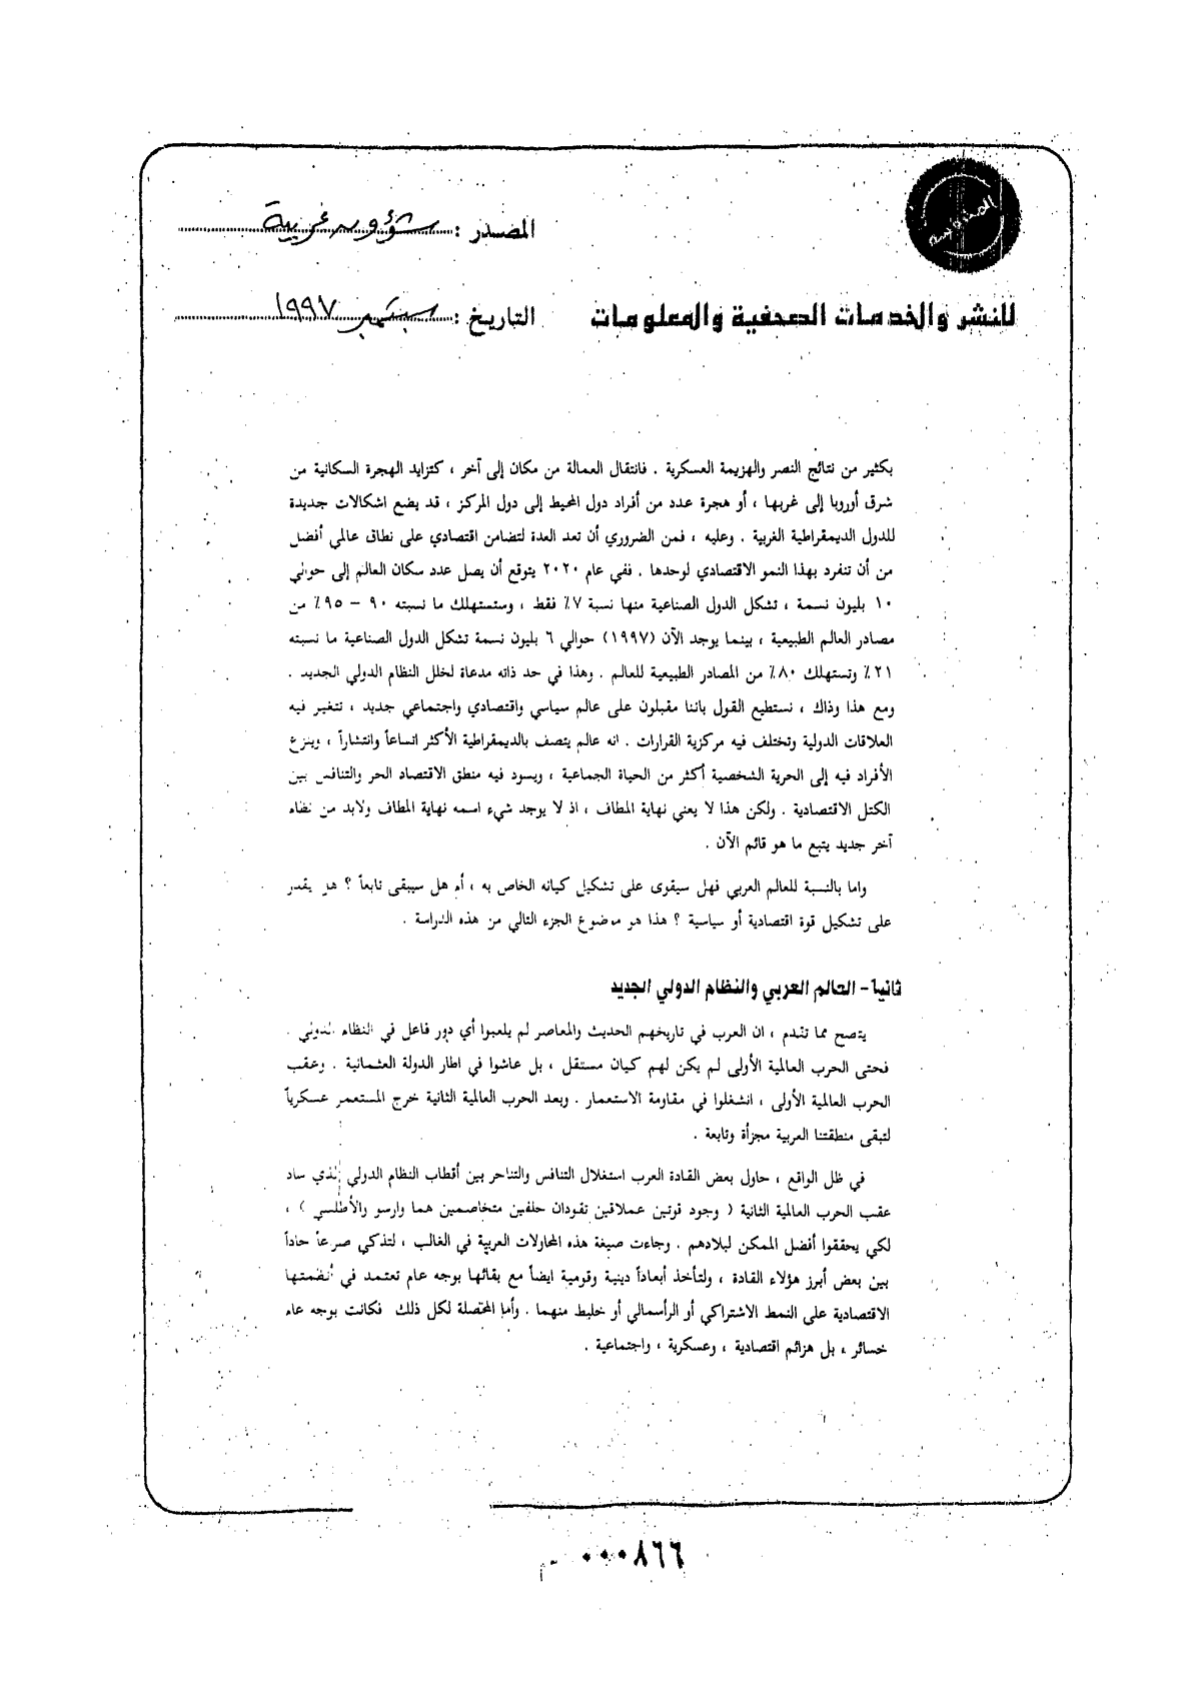 المصدر : شؤون عربية
للنشر والخدمات الصحفية والمعلومات
التاريخ : سبتمبر ١٩٩٧
بكثير من نتائج النصر والهزيمة العسكرية . فانتقال العمالة من مكان إلى آخر ، كتزايد الهجرة السكانية من
شرق أوروبا إلى غربها ، أو هجرة عدد من أفراد دول المحيط إلى دول المركز ، قد يضع اشكالات جديدة
للدول الديمقراطية الغربية . وعليه ، فمن الضروري أن تعد العدة لتضامن اقتصادي على نطاق عالمي أفضل
من أن تنفرد بهذا النمو الاقتصادي لوحدها . ففي عام ٢٠٢٠ يتوقع أن يصل عدد سكان العالم إلى حوالي
١٠ بليون نسمة ، تشكل الدول الصناعية منها نسبة ٧٪ فقط ، وستستهلك ما نسبته ٩٠ – ٩٥٪ من
مصادر العالم الطبيعية ، بينما يوجد الآن (١٩٩٧) حوالي ٦ بليون نسمة تشكل الدول الصناعية ما نسبته
٢١٪ وتستهلك ٨٠٪ من المصادر الطبيعية للعالم . وهذا في حد ذاته مدعاة لخلل النظام الدولي الجديد .
ومع هذا وذاك ، نستطيع القول باننا مقبلون على عالم سياسي واقتصادي واجتماعي جديد ، تتغير فيه
العلاقات الدولية وتختلف فيه مركزية القرارات . انه عالم يتصف بالديمقراطية الأكثر اتساعاً وانتشاراً ، وينزع
الأفراد فيه إلى الحرية الشخصية أكثر من الحياة الجماعية ، ويسود فيه منطق الاقتصاد الحر والتنافس بين
الكتل الاقتصادية . ولكن هذا لا يعني نهاية المطاف ، اذ لا يوجد شيء اسمه نهاية المطاف ولابد من نظام
آخر جديد يتبع ما هو قائم الآن .
واما بالنسبة للعالم العربي فهل سيقوى على تشكيل كيانه الخاص به ، أم هل سيبقى تابعاً ؟ هل يقدر
على تشكيل قوة اقتصادية أو سياسية ؟ هذا هو موضوع الجزء التالي من هذه الدراسة .
ثانيا - العالم العربي والنظام الدولي الجديد
يتضح مما تقدم ، ان العرب في تاريخهم الحديث والمعاصر لم يلعبوا أي دور فاعل في النظام الدولي .
فحتى الحرب العالمية الأولى لم يكن لهم كيان مستقل ، بل عاشوا في اطار الدولة العثمانية . وعقب
الحرب العالمية الأولى ، انشغلوا في مقاومة الاستعمار . وبعد الحرب العالمية الثانية خرج المستعمر عسكرياً
لتبقى منطقتنا العربية مجزأة وتابعة .
في ظل الواقع ، حاول بعض القادة العرب استغلال التنافس والتناحر بين أقطاب النظام الدولي الذي ساد
عقب الحرب العالمية الثانية ( وجود قوتين عملاقين تقودان حلفين متخاصمين هما وارسو والأطلسي ) ،
لكي يحققوا أفضل الممكن لبلادهم . وجاءت صيغة هذه المحاولات العربية في الغالب ، لتذكي صرعاً حاداً
بين بعض أبرز هؤلاء القادة ، ولتأخذ أبعاداً دينية وقومية ايضاً مع بقائها بوجه عام تعتمد في أنظمتها
الاقتصادية على النمط الاشتراكي أو الرأسمالي أو خليط منهما . وأما المحصلة لكل ذلك فكانت بوجه عام
خسائر ، بل هزائم اقتصادية ، وعسكرية ، واجتماعية .
٠٠٠٨٦٦